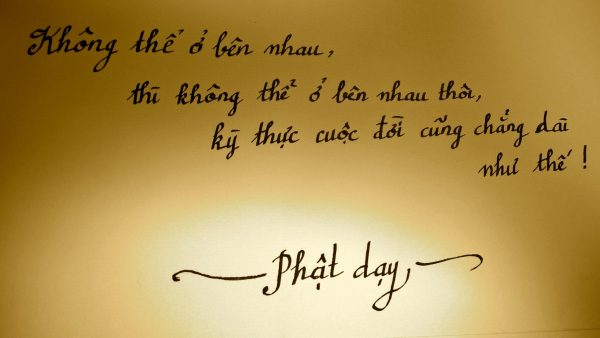 Không thể ở bên nhau,
thì không thể ở bên nhau thôi,
kỳ thực cuộc đời cũng chẳng dài
như thế!
Phật dạy